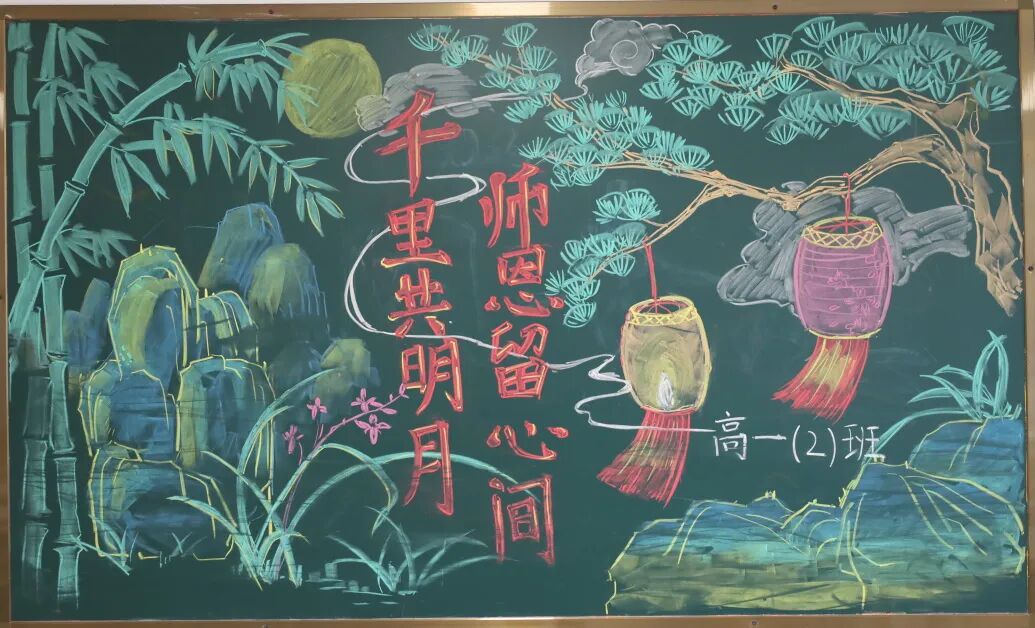 千里共明月
师恩留心间
高一(2)班